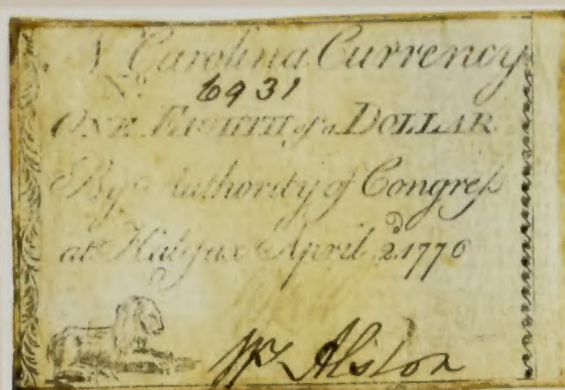 N Carolina Currency
No 6931
ONE EIGHTH of a DOLLAR
By Authority of Congreſs
at Halifax April 2d. 1776
Wm Alston